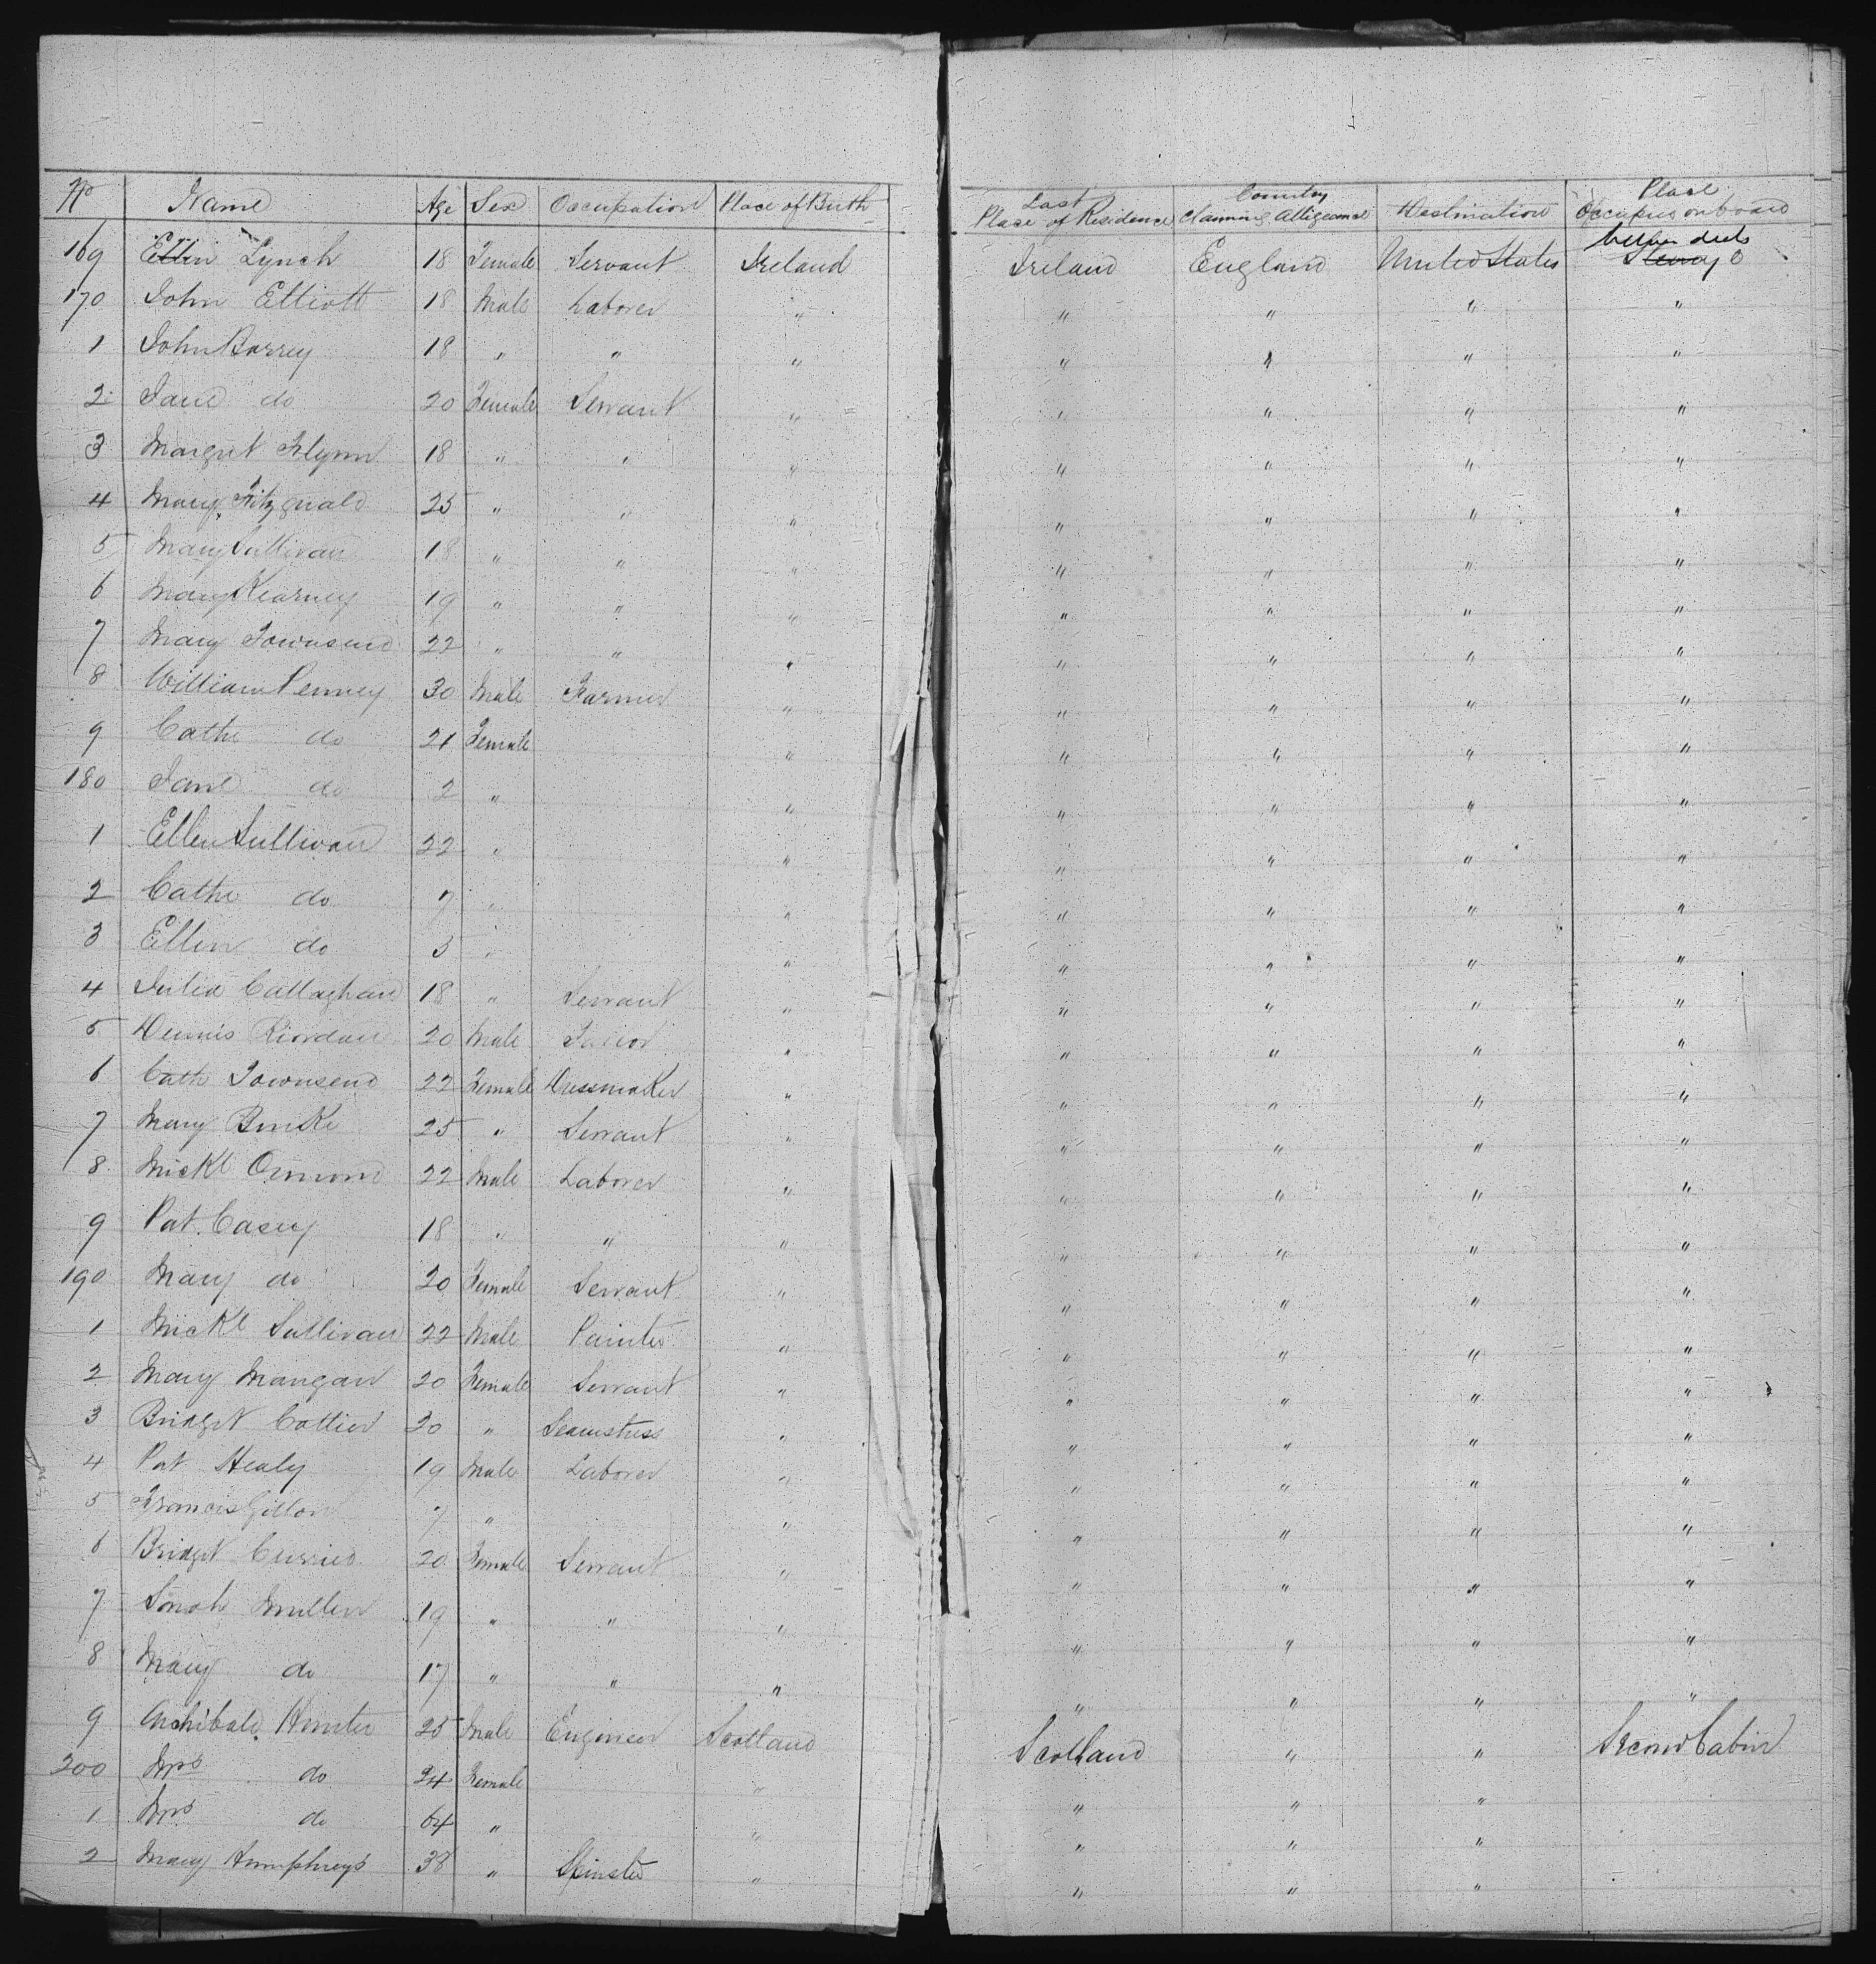 No Name Age Sex Occupation Place of Birth Last Place of Residence Country Claiming Alligeance Destination Place Occupied on board
169 Ellin Lynch 18 Female Servant Ireland Ireland England United States between decks Steerage
170 John Elliott 18 Male Laborer " " " " "
1 John Barrey 18 " " " " " " "
2 Jane do 20 Female Servant " " " " "
3 Margret Flynn 18 " " " " " " "
4 Mary Fitzgerald 25 " " " " " " "
5 Mary Sullivan 18 " " " " " " "
6 Mary Kearney 19 " " " " " " "
7 Mary Townsend 22 " " " " " " "
8 William Penney 30 Male Farmer " " " " "
9 Cathe do 21 Female " " " " "
180 Jane do 2 " " " " " "
1 Ellen Sullivan 22 " " " " " "
2 Cathe do 7 " " " " " "
3 Ellen do 3 " " " " " "
4 Julia Callaghan 18 " Servant " " " " "
5 Dennis Riordan 20 Male Tailor " " " " "
6 Cath Townsend 22 Female Dressmaker " " " " "
7 Mary Burke 25 " Servant " " " " "
8 Mickl Ormond 22 Male Laborer " " " " "
9 Pat. Casey 18 " " " " " " "
190 Mary do 20 Female Servant " " " " "
1 Mickl Sullivan 22 Male Painter " " " " "
2 Mary Mangan 20 Female Servant " " " " "
3 Bridget Collier 20 " Seamstress " " " " "
4 Pat Healy 19 Male Laborer " " " " "
5 Francis Gillon 7 " " " " " "
6 Bridget Currier 20 Female Servant " " " " "
7 Sarah Mullen 19 " " " " " " "
8 Mary do 17 " " " " " " "
9 Archibald Hunter 25 Male Engineer Scotland Scotland " " Second Cabin
200 Mrs do 24 Female " " " "
1 Mrs do 64 " " " " "
2 Mary Humphreys 38 " Spinster " " " "